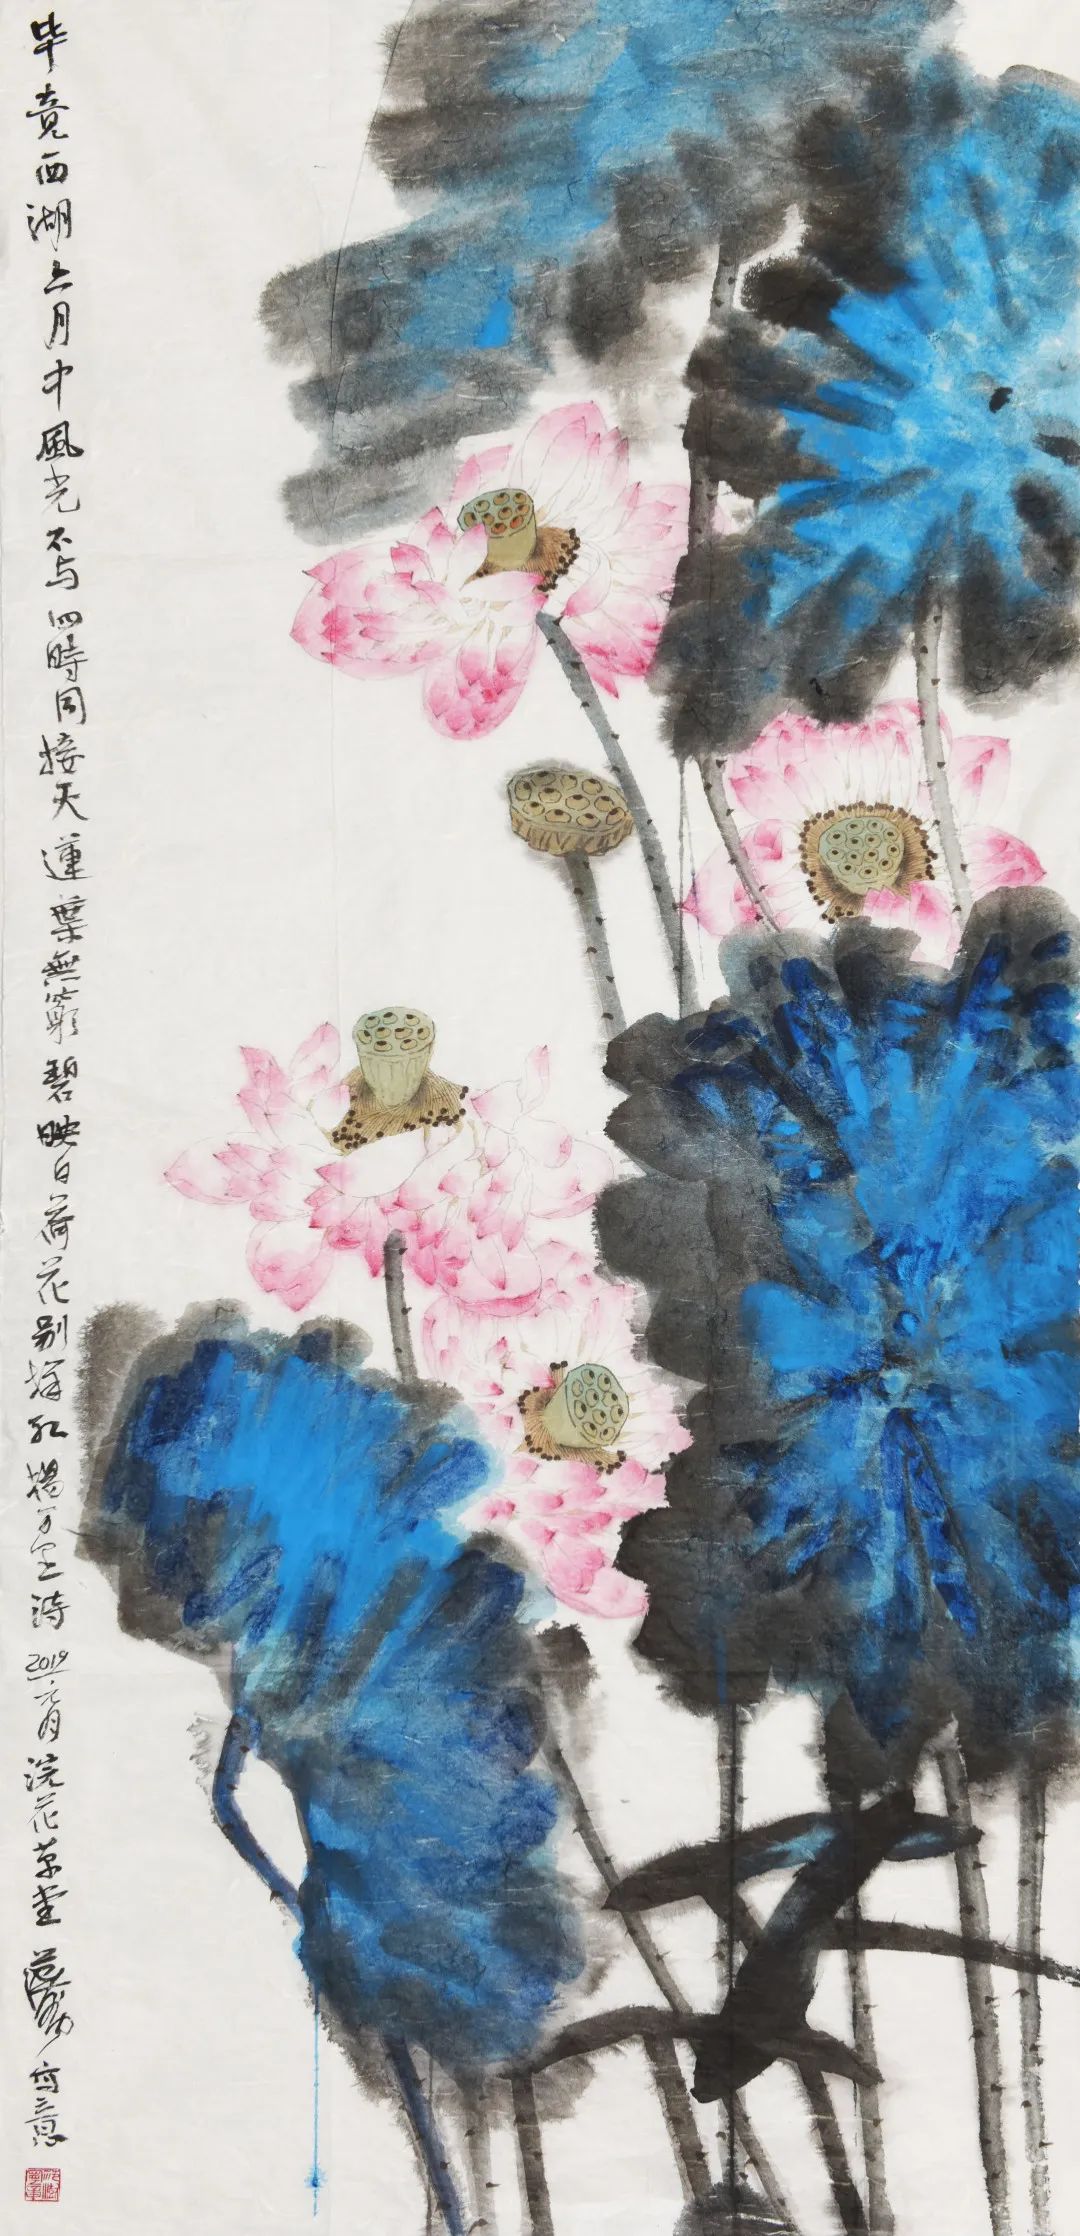 毕竟西湖六月中風光不与四時同接天蓮葉無窮碧映日荷花别样红楊万里诗2019元月浣花草堂写意